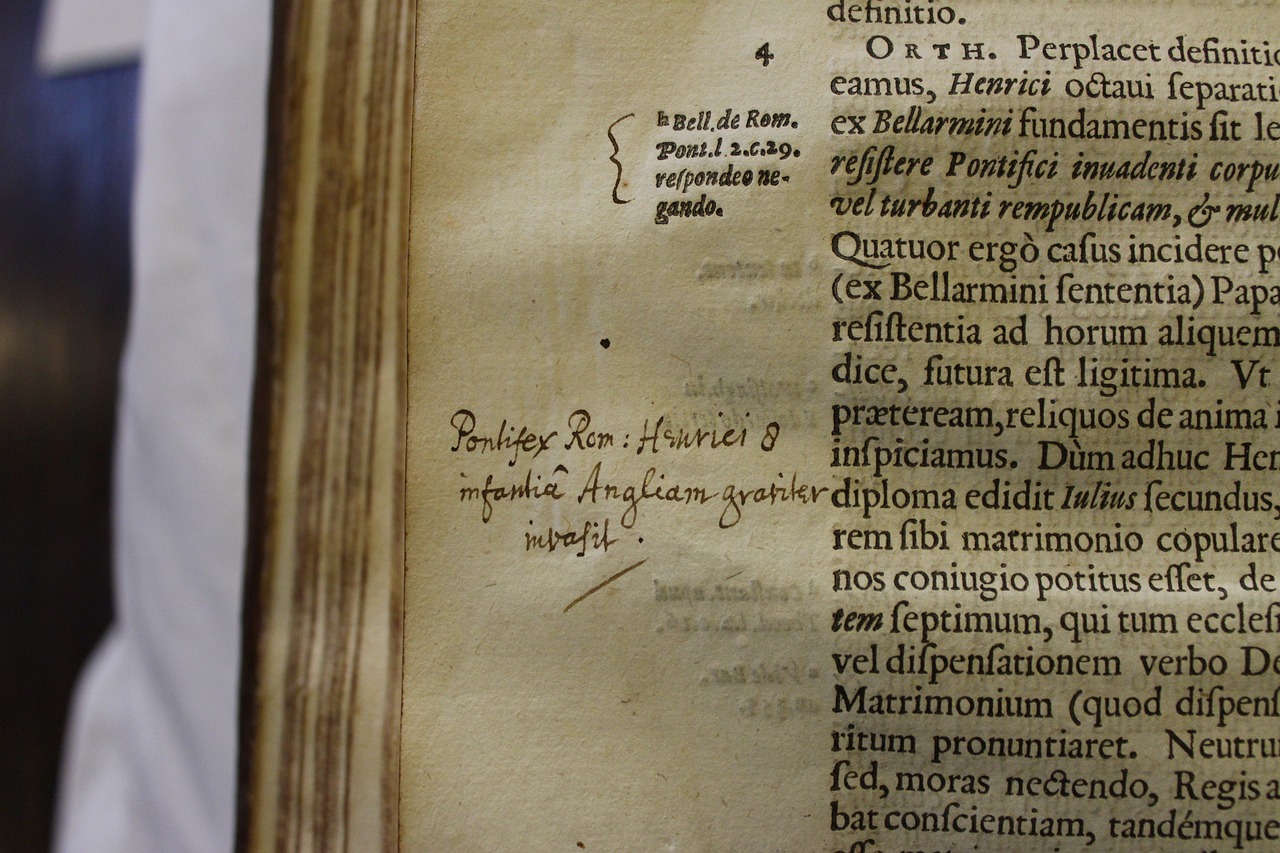 definitio.
4
ORTH. Perplacet definitio
eamus, Henrici octaui ſeparati
h Bell. de Rom.
Pont. l. 2. c. 29.
reſpondeo ne-
gando.
ex Bellarmini fundamentis ſit le
reſiſtere Pontifici inuadenti corpu
vel turbanti rempublicam, & mul
Quatuor ergò caſus incidere po
(ex Bellarmini ſententia) Papa
reſiſtentia ad horum aliquem
dice, futura eſt ligitima. Vt
præteream, reliquos de anima i
inſpiciamus. Dùm adhuc Hen
Pontifex Rom: Henrici 8
infantiâ Angliam graviter
invaſit.
diploma edidit Iulius ſecundus,
rem ſibi matrimonio copulare
nos coniugio potitus eſſet, de
tem ſeptimum, qui tum eccleſi
vel diſpenſationem verbo De
Matrimonium (quod diſpenſ
ritum pronuntiaret. Neutru
ſed, moras nectendo, Regis a
bat conſcientiam, tandémque